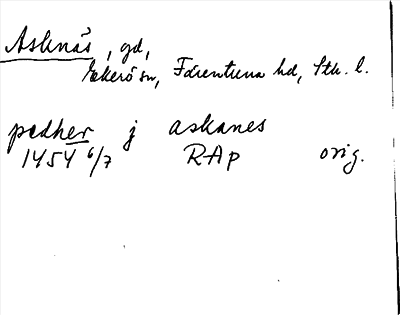 Asknäs, gd,
Ekerö sn, Färentuna hd, Sth. l.
pædher j askanes
1454 6/7 RAp orig.